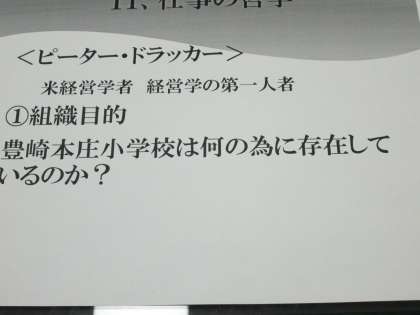 11、仕事の哲学
＜ピーター・ドラッカー＞
米経営学者 経営学の第一人者
①組織目的
豊崎本庄小学校は何の為に存在して
いるのか？